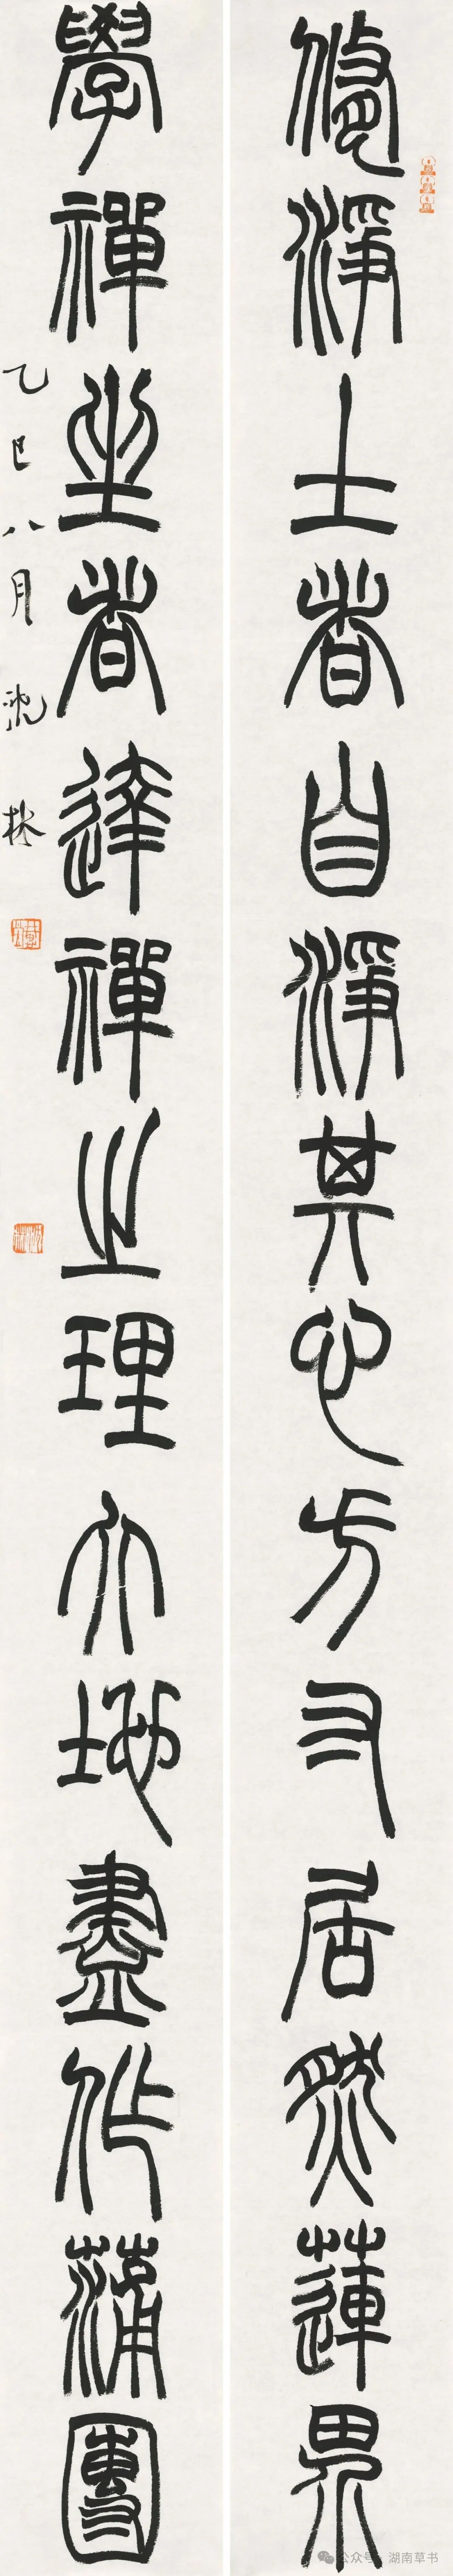 修淨土者自淨其心方寸居然蓮界
學禪坐者達禪之理大地盡作蒲團
乙巳八月
公众号·湖南草书